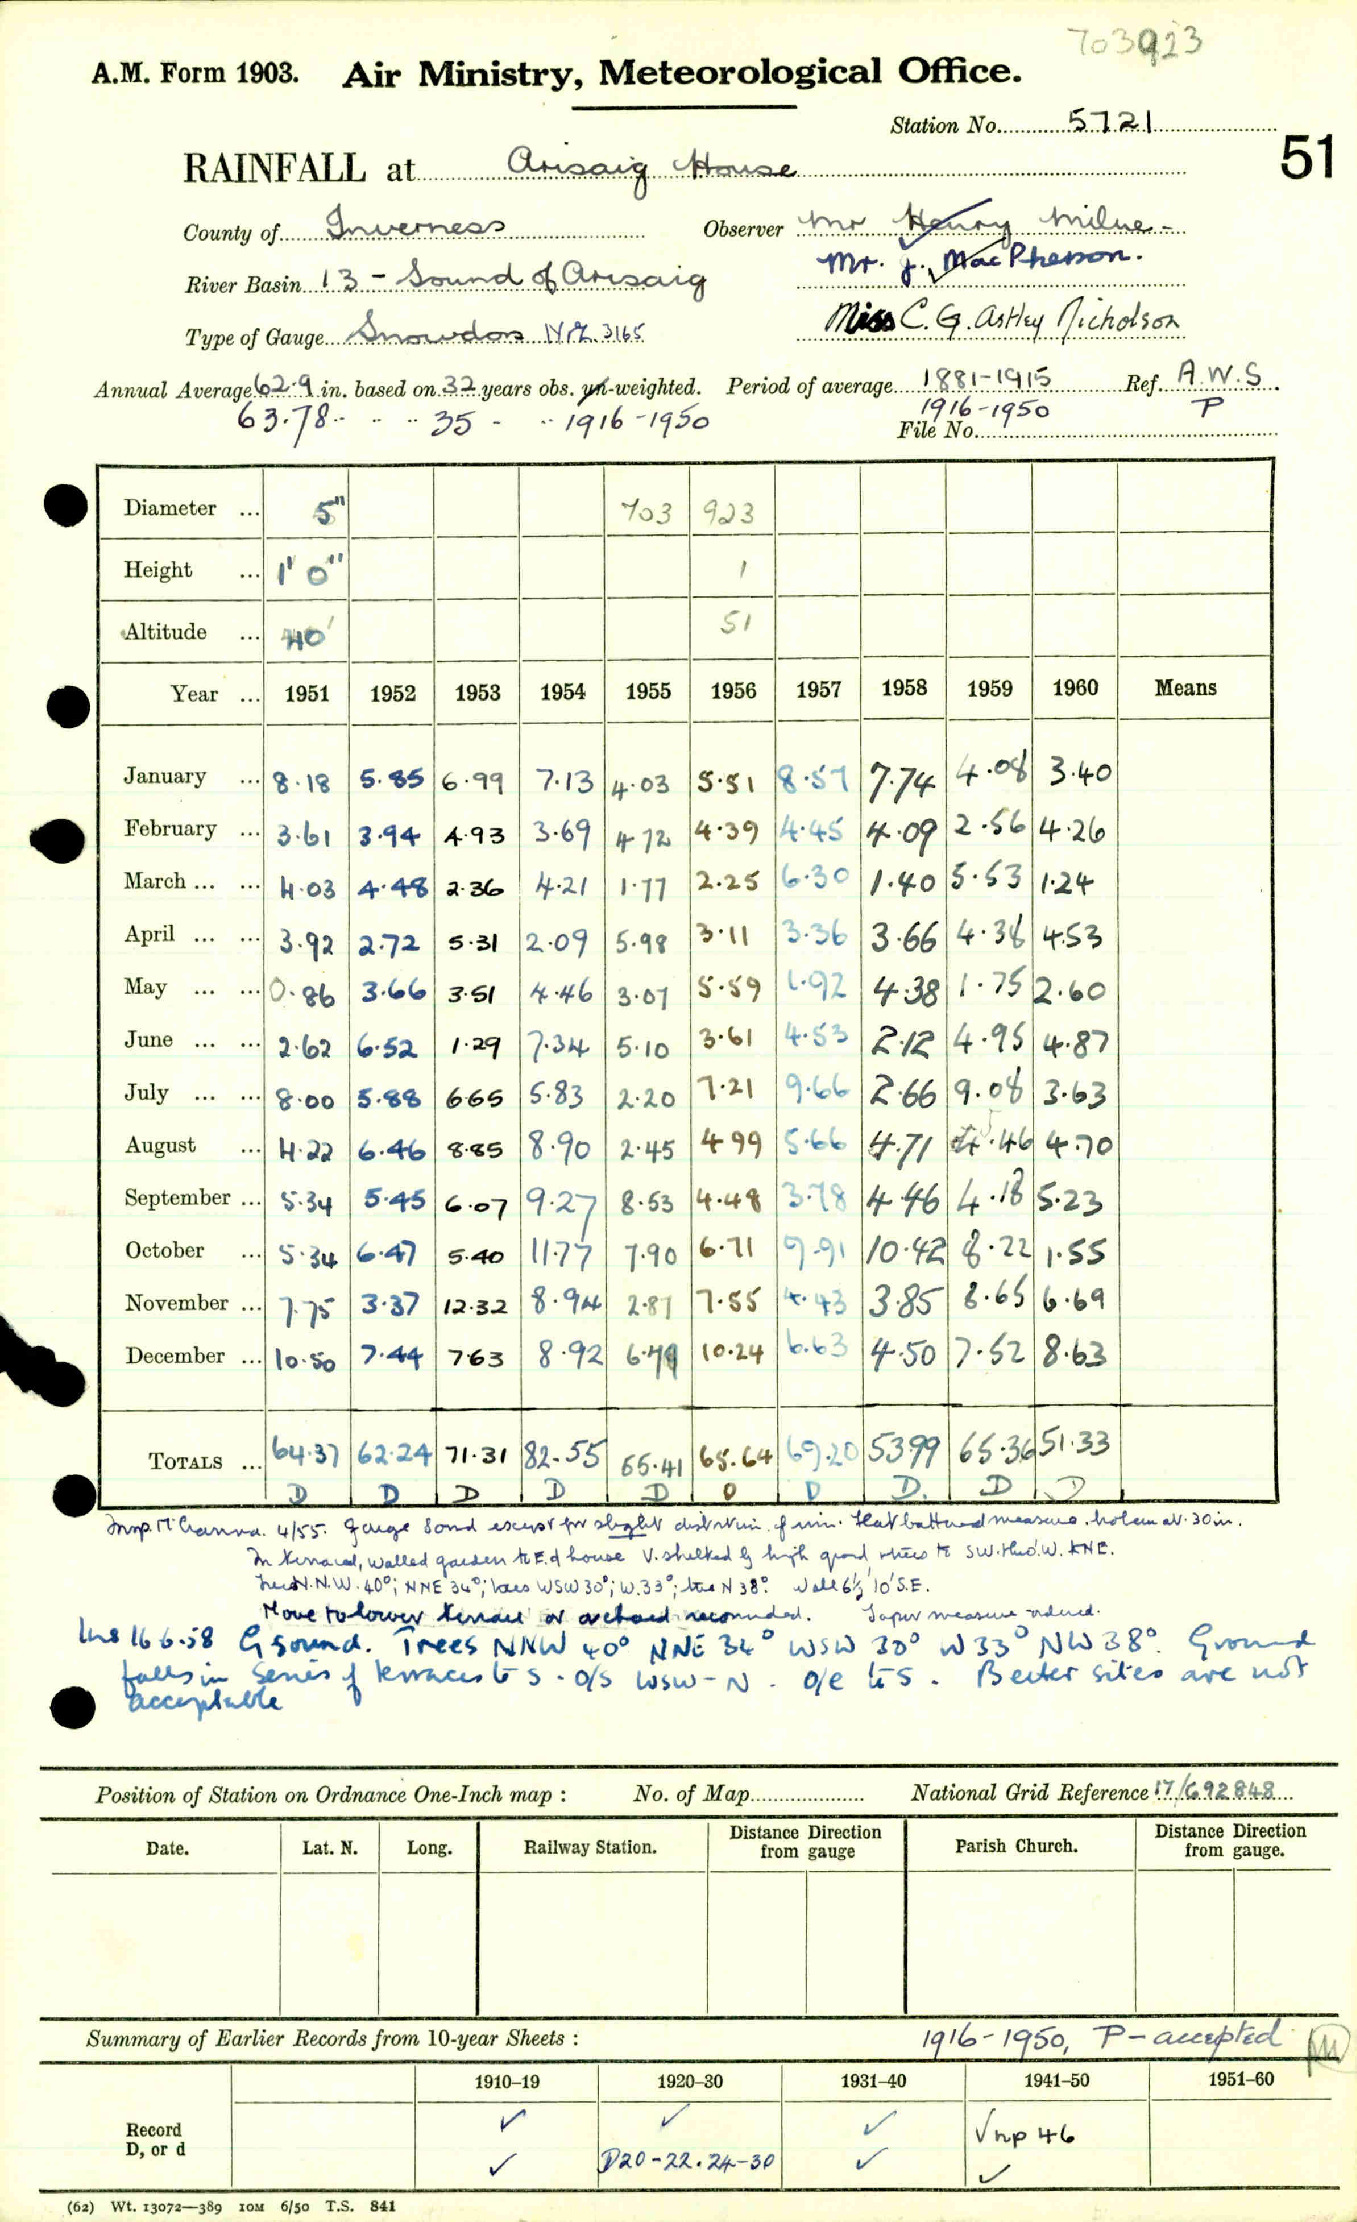 703923
A.M. Form 1903. Air Ministry, Meteorological Office.
Station No. 5721
51
RAINFALL at Arisaig House
County of Inverness Observer Mr Henry Milne
Mr. J. MacPherson.
River Basin 13 - Sound of Arisaig
Miss C. G. Astley Nicholson
Type of Gauge Snowdon No. 3165
Annual Average 62.9 in. based on 32 years obs. un-weighted. Period of average 1881-1915 Ref. A.W.S.
63.78 " " " 35 " " 1916-1950 1916-1950 P
File No.
Diameter ... 5" 703 923
Height ... 1' 0" 1
Altitude ... 40' 51
Year ... 1951 1952 1953 1954 1955 1956 1957 1958 1959 1960 Means
January ... 8.18 5.85 6.99 7.13 4.03 5.51 8.57 7.74 4.08 3.40
February ... 3.61 3.94 4.93 3.69 4.72 4.39 4.45 4.09 2.56 4.26
March ... ... 4.03 4.48 2.36 4.21 1.77 2.25 6.30 1.40 5.53 1.24
April ... ... 3.92 2.72 5.31 2.09 5.98 3.11 3.36 3.66 4.38 4.53
May ... ... 0.86 3.66 3.51 4.46 3.07 5.59 1.92 4.38 1.75 2.60
June ... ... 2.62 6.52 1.29 7.34 5.10 3.61 4.53 2.12 4.95 4.87
July ... ... 8.00 5.88 6.65 5.83 2.20 7.21 9.66 2.66 9.08 3.63
August ... 4.22 6.46 8.85 8.90 2.45 4.99 5.66 4.71 4.46 4.70
September ... 5.34 5.45 6.07 9.27 8.53 4.48 3.78 4.46 4.18 5.23
October ... 5.34 6.47 5.40 11.77 7.90 6.71 9.91 10.42 8.22 1.55
November ... 7.75 3.37 12.32 8.94 2.87 7.55 4.43 3.85 8.65 6.69
December ... 10.50 7.44 7.63 8.92 6.79 10.24 6.63 4.50 7.52 8.63
TOTALS ... 64.37 62.24 71.31 82.55 55.41 65.64 69.20 53.99 65.36 51.33
D D D D D D D D. D D
Insp. 4/55. Gauge sound except for slight distortion of rim. Flat battened measure. hole at .30 in.
In terraced, walled garden to E. of house V. sheltered by high ground, trees to SW. W. & NE.
Trees N.N.W. 40°; NNE 34°; trees WSW 30°; W. 33°; tree N 38°. Wall 6½' 10' S.E.
Move to lower terrace or orchard recommended. Taper measure ordered.
Ins 16.6.58 G sound. Trees NNW 40° NNE 34° WSW 30° W 33° NW 38°. Ground
falls in series of terraces to S. o/s WSW-N. o/e to S. Better sites are not
acceptable
Position of Station on Ordnance One-Inch map : No. of Map National Grid Reference 17/692848
Date. Lat. N. Long. Railway Station. Distance from gauge Direction Parish Church. Distance from gauge. Direction
Summary of Earlier Records from 10-year Sheets : 1916-1950, P - accepted
1910–19 1920–30 1931–40 1941–50 1951–60
Record ✓ ✓ ✓ √ np 46
D, or d ✓ D20-22.24-30 ✓ ✓
(62) Wt. 13072—389 10M 6/50 T.S. 841